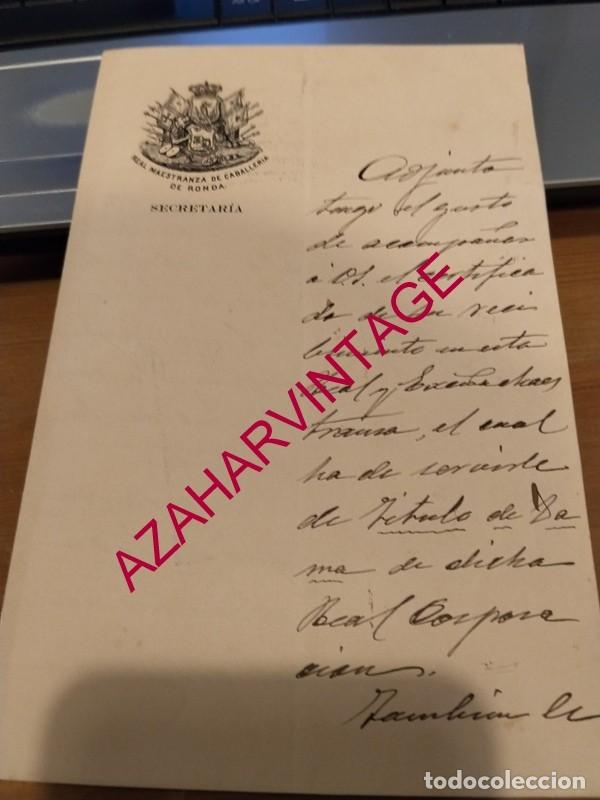 REAL MAESTRANZA DE CABALLERIA
DE RONDA.
SECRETARÍA
Adjunto
tengo el gusto
de acompañar
á el certifica
do de su reci
bimiento en esta
Real y Maes
tranza, el cual
ha de servirle
de Título de Da
ma de dicha
Real Corpora
cion.
Tambien le
AZAHARVINTAGE
todocoleccion